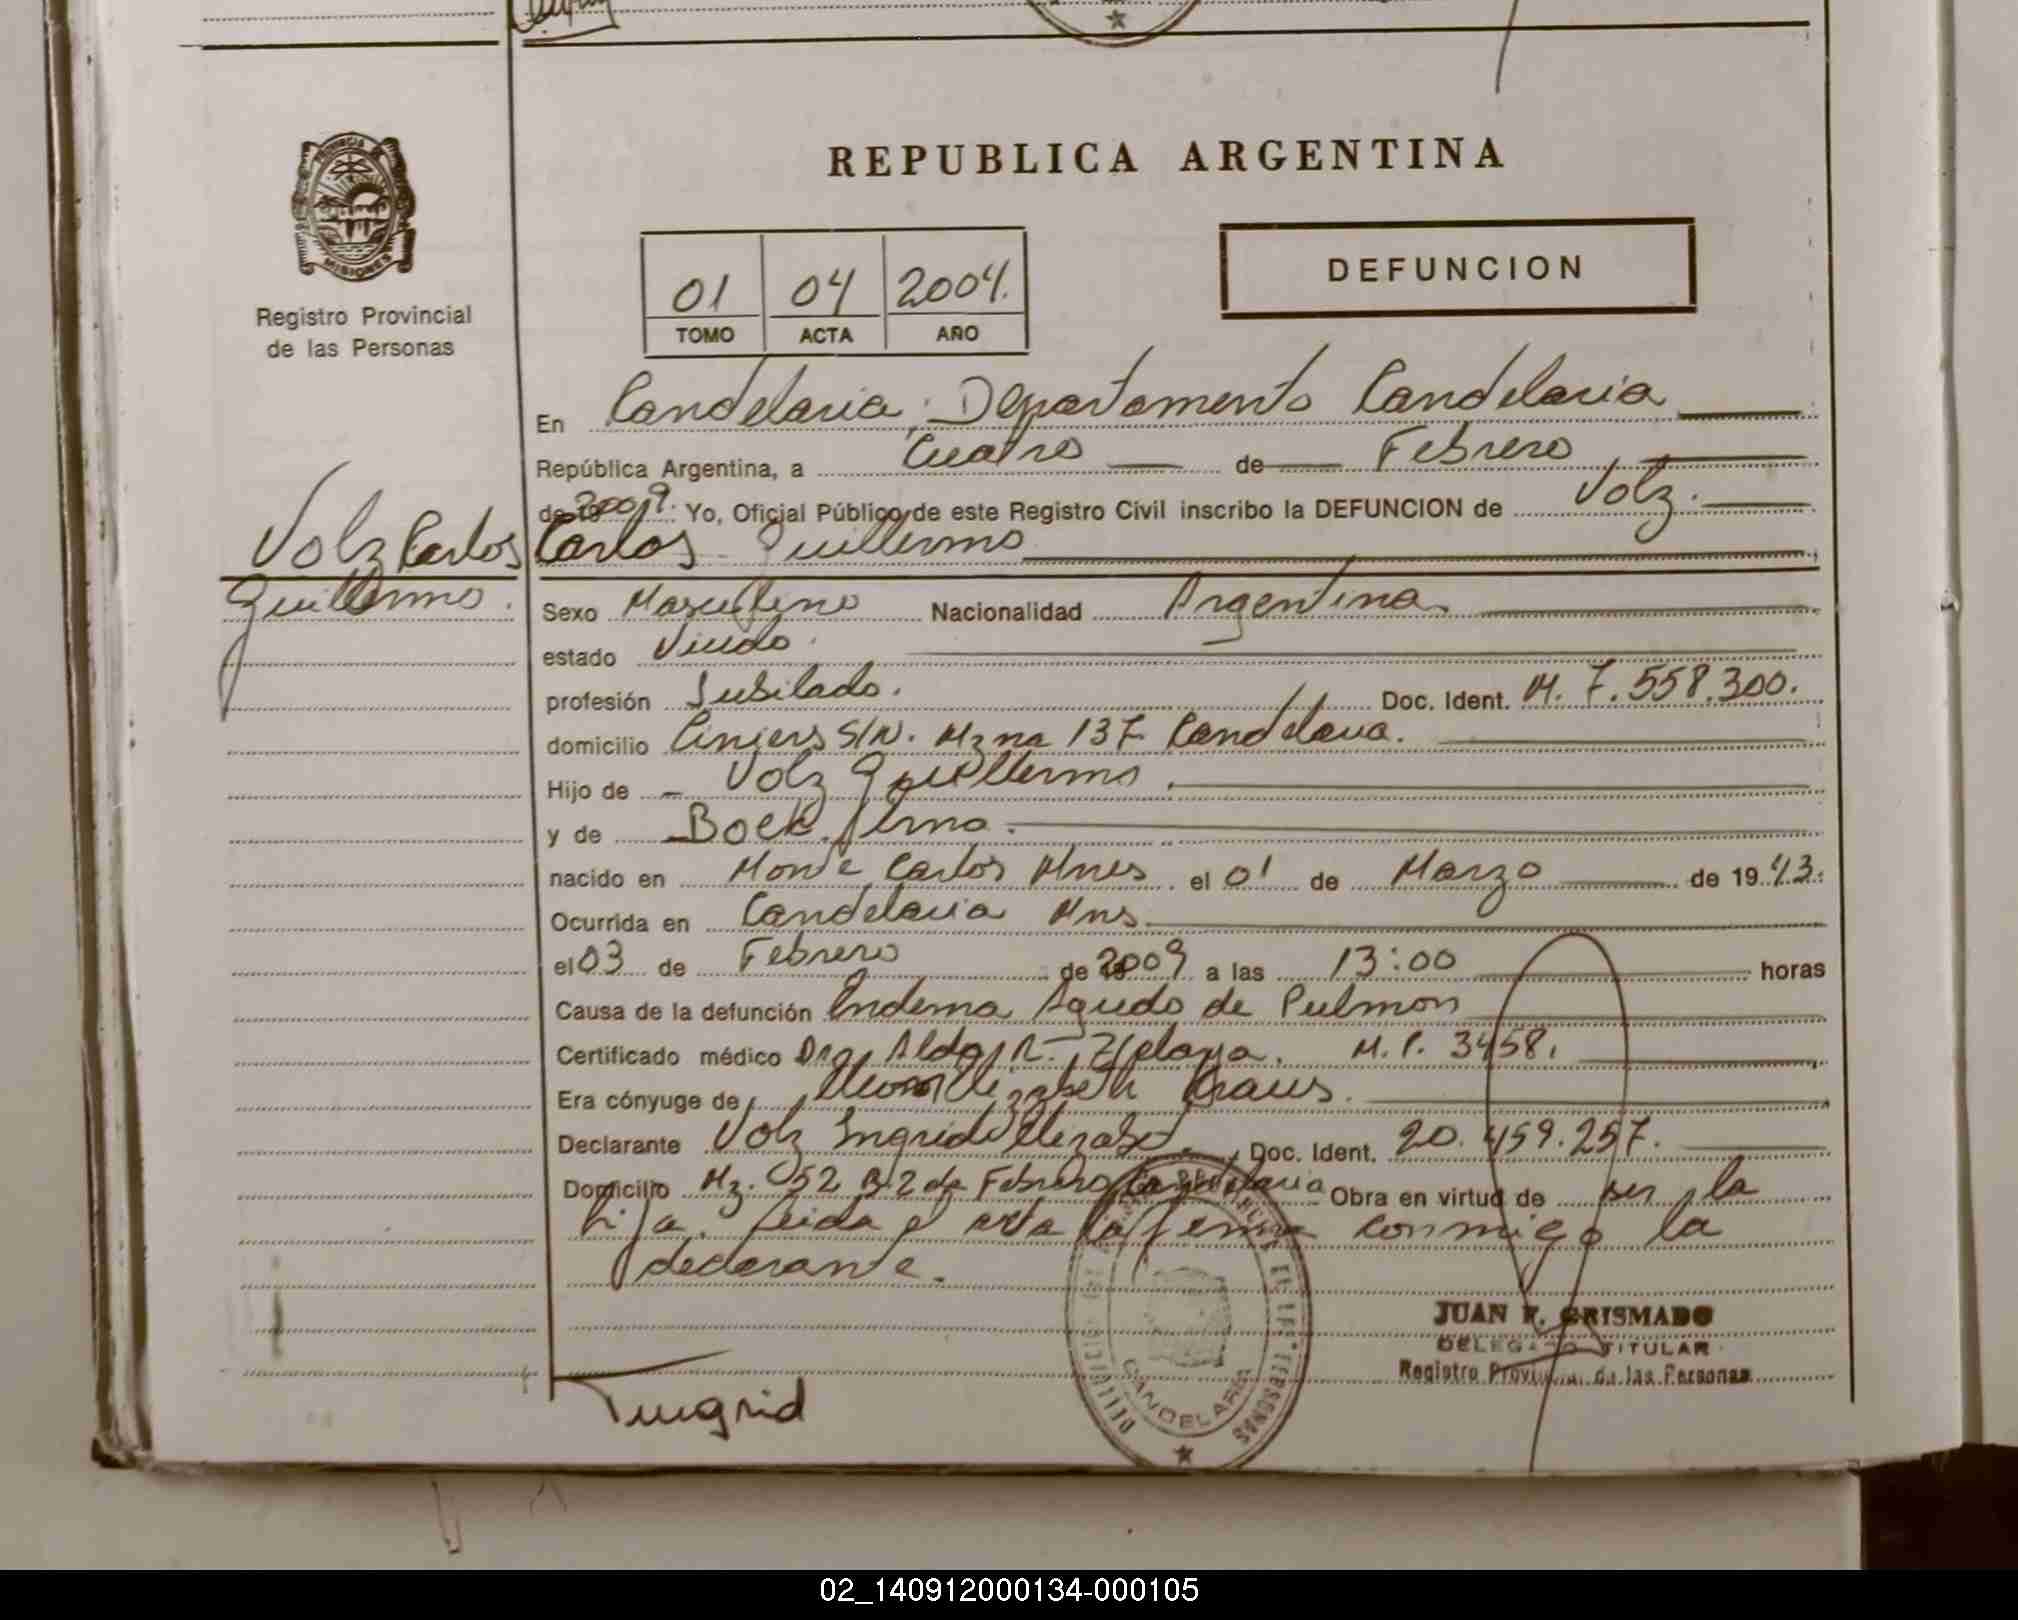 PROVINCIA DE
MISIONES
Registro Provincial
de las Personas
Volz Carlos
Guillermo.
REPUBLICA ARGENTINA
DEFUNCION
01 04 2004.
TOMO ACTA AÑO
En Candelaria, Departamento Candelaria
República Argentina, a Cuatro de Febrero
de 19 2009. Yo, Oficial Público de este Registro Civil inscribo la DEFUNCION de Volz.
Carlos Guillermo
Sexo Masculino Nacionalidad Argentina
estado Viudo.
profesión Jubilado. Doc. Ident. M. 7.558.300.
domicilio S/N. Mzna 137 Candelaria.
Hijo de Volz Guillermo.
y de Boek Irma.
nacido en Monte Carlos Mnes el 01 de Marzo de 19 43.
Ocurrida en Candelaria Mns.
el 03 de Febrero de 2009 a las 13:00 horas
Causa de la defunción Endema Agudo de Pulmon
Certificado médico Dr. Aldo R. Zelaya. M.P. 3458.
Era cónyuge de Elizabeth Kraus.
Declarante Volz Ingrid Elizabet. Doc. Ident. 20.459.257.
Domicilio Mz. 52 B 2 de Febrero Candelaria Obra en virtud de ser la
hija. Leida el acta la firma conmigo la
declarante.
JUAN F. GRISMADO
DELEGADO TITULAR
Registro Provincial de las Personas
CANDELARIA
Ingrid
02_140912000134-000105